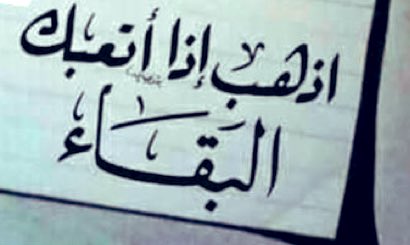 اذهب إذا أتعبك
البقاء